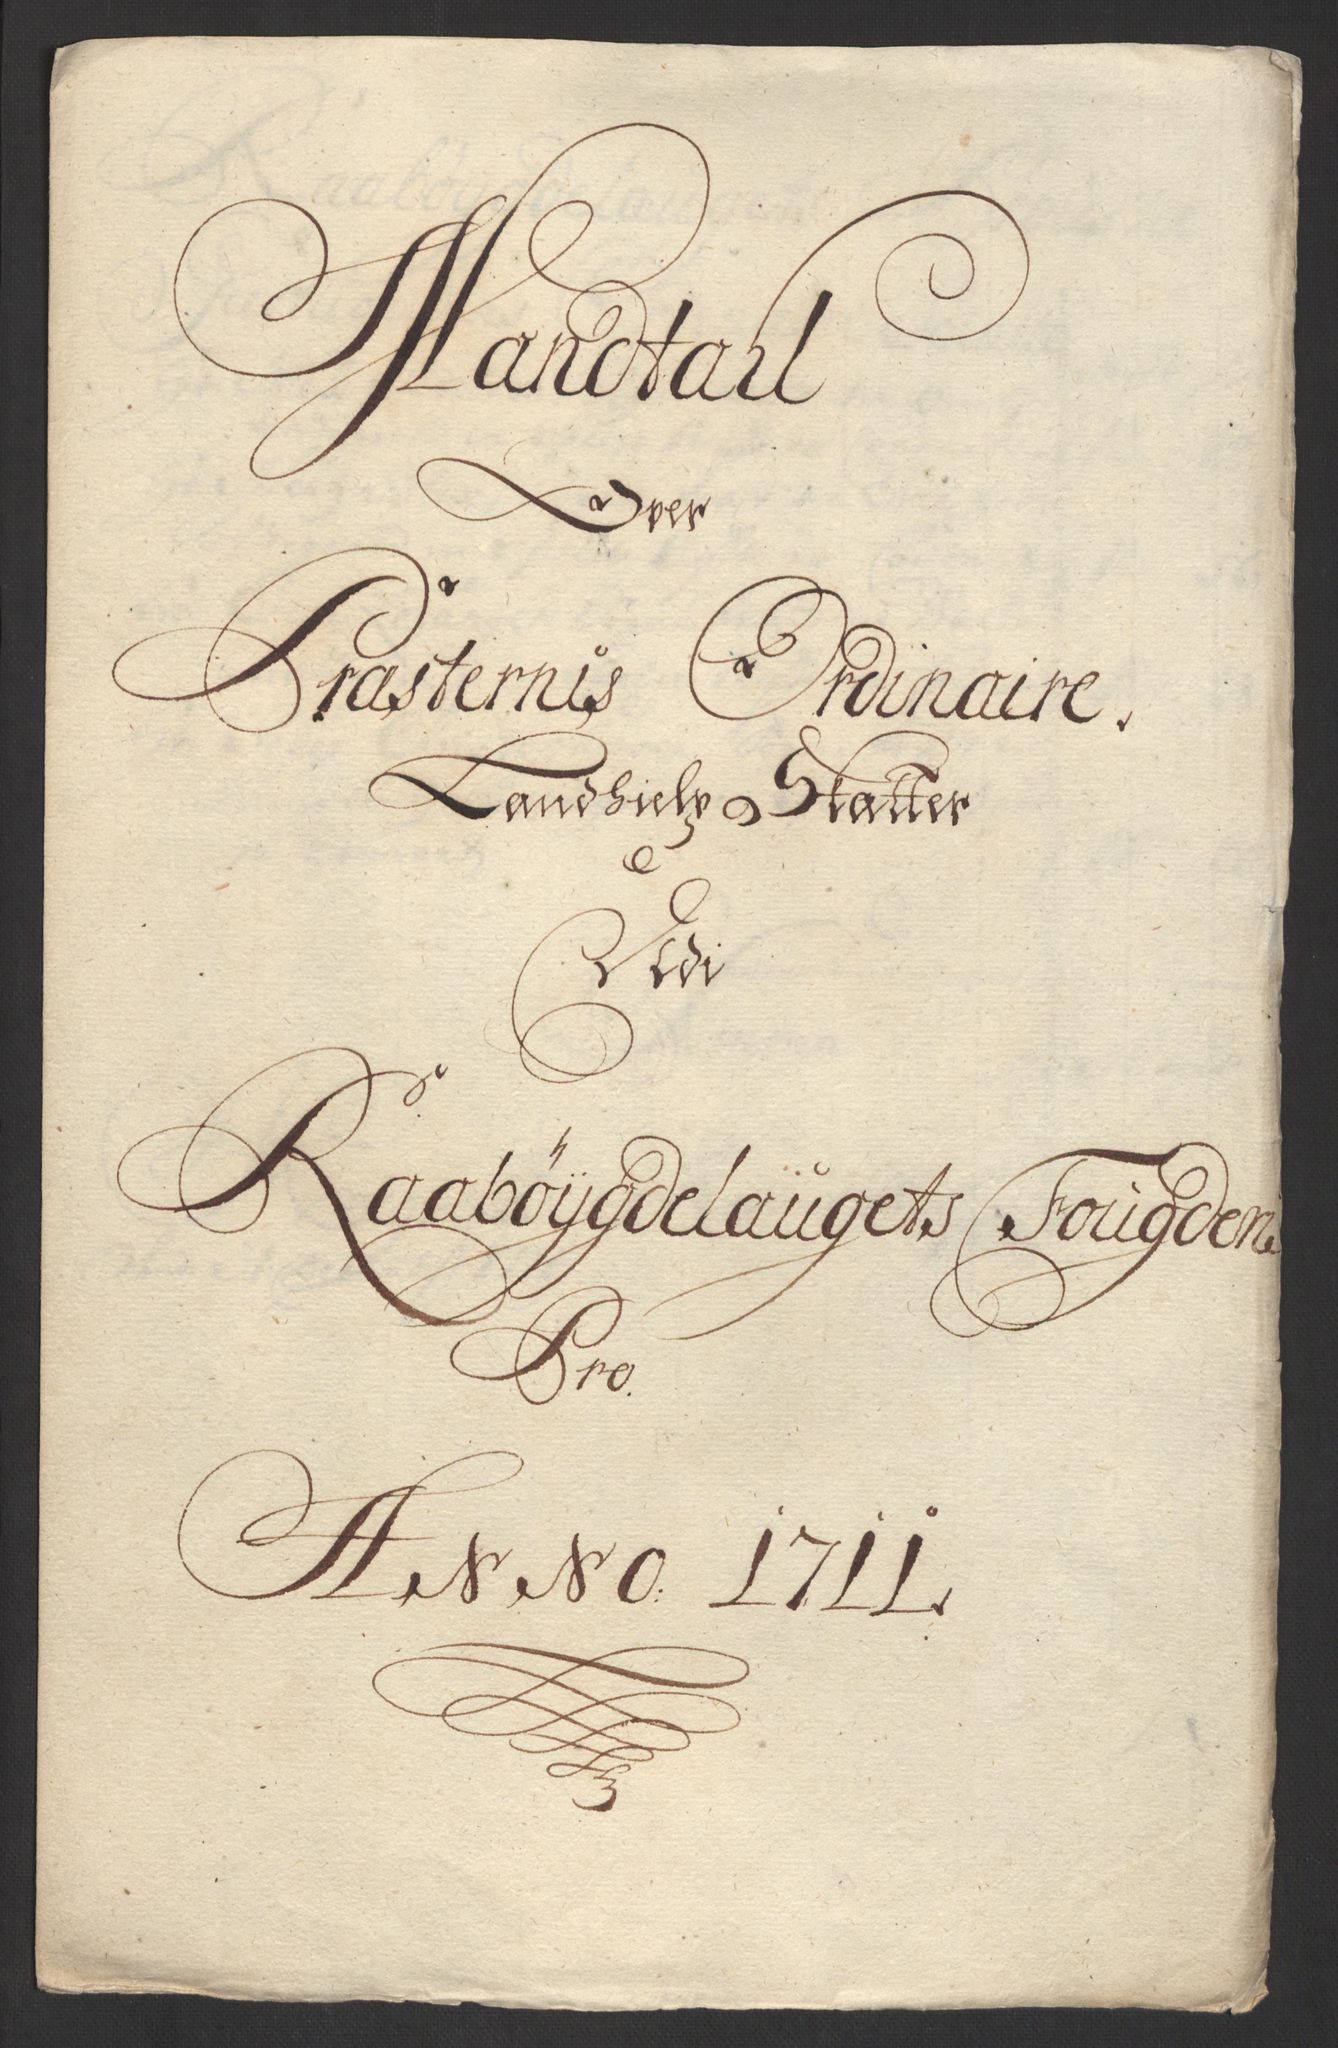 Mandtall
Over
Præsternis Ordinaire.
Landhielp Skatter
Udi
Raabøÿgdelaugets Fougderie
Pro.
ANNO. 1711.